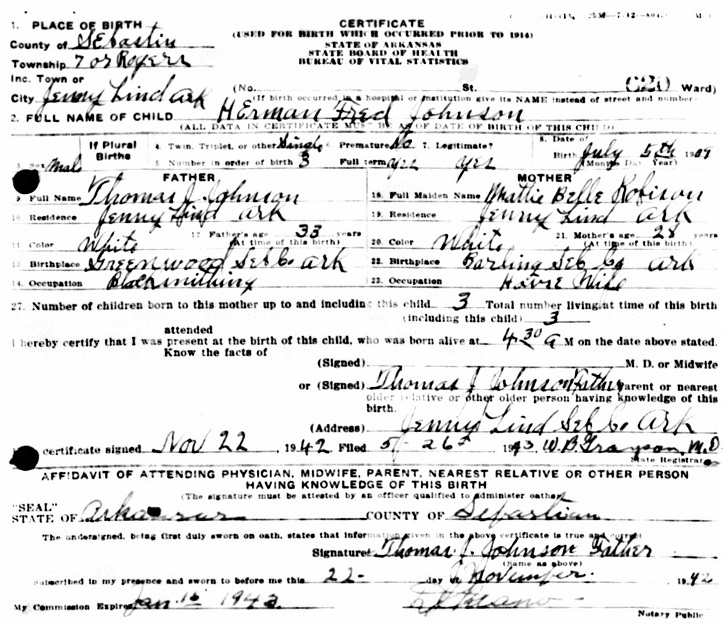 1. PLACE OF BIRTH
CERTIFICATE
County of Sebastin
(USED FOR BIRTH WHICH OCCURRED PRIOR TO 1914)
STATE OF ARKANSAS
Township 7 or Rogers
STATE BOARD OF HEALTH
BUREAU OF VITAL STATISTICS
Inc. Town or
City Jenny Lind Ark (No. St. 620 Ward)
(If birth occurred in a hospital or institution give its NAME instead of street and number)
2. FULL NAME OF CHILD HErman Fred Johnson
(ALL DATA IN CERTIFICATE MUST BE AS OF DATE OF BIRTH OF THIS CHILD)
3. Sex Male If Plural Births 4. Twin, Triplet, or other Single Premature No 7. Legitimate? 8. Date of
5. Number in order of birth 3 Full term yes yes Birth July 5th 1909
(Month, Day, Year)
FATHER MOTHER
9. Full Name Thomas J. Johnson 18. Full Maiden Name Mattie Belle Robison
10. Residence Jenny Lind Ark 19. Residence Jenny Lind Ark
11. Color White 12. Father's age 33 years (At time of this birth) 20. Color White 21. Mother's age 28 years (At time of this birth)
13. Birthplace Greenwood Seb Co Ark 22. Birthplace Barling Seb Co Ark
14. Occupation Blacksmithing 23. Occupation House Wife
27. Number of children born to this mother up to and including this child 3 Total number living at time of this birth
(including this child) 3
attended
I hereby certify that I was present at the birth of this child, who was born alive at 4 30 a M on the date above stated.
Know the facts of
(Signed) M. D. or Midwife
or (Signed) Thomas J Johnson Father Parent or nearest
older relative or other older person having knowledge of this
birth.
(Address) Jenny Lind Seb Co Ark
certificate signed Nov 22 1942 Filed 5-26 1943 W B Grayson, M.D.
State Registrar
AFFIDAVIT OF ATTENDING PHYSICIAN, MIDWIFE, PARENT, NEAREST RELATIVE OR OTHER PERSON
HAVING KNOWLEDGE OF THIS BIRTH
(The signature must be attested by an officer qualified to administer oaths)
"SEAL"
STATE OF Arkansas COUNTY OF Sebastian
The undersigned, being first duly sworn on oath, states that information given in the above certificate is true and correct
Signature: Thomas J. Johnson Father
(Name as above)
Subscribed in my presence and sworn to before me this 22- day of November. 1942
My Commission Expires Jan 15 1943
Notary Public